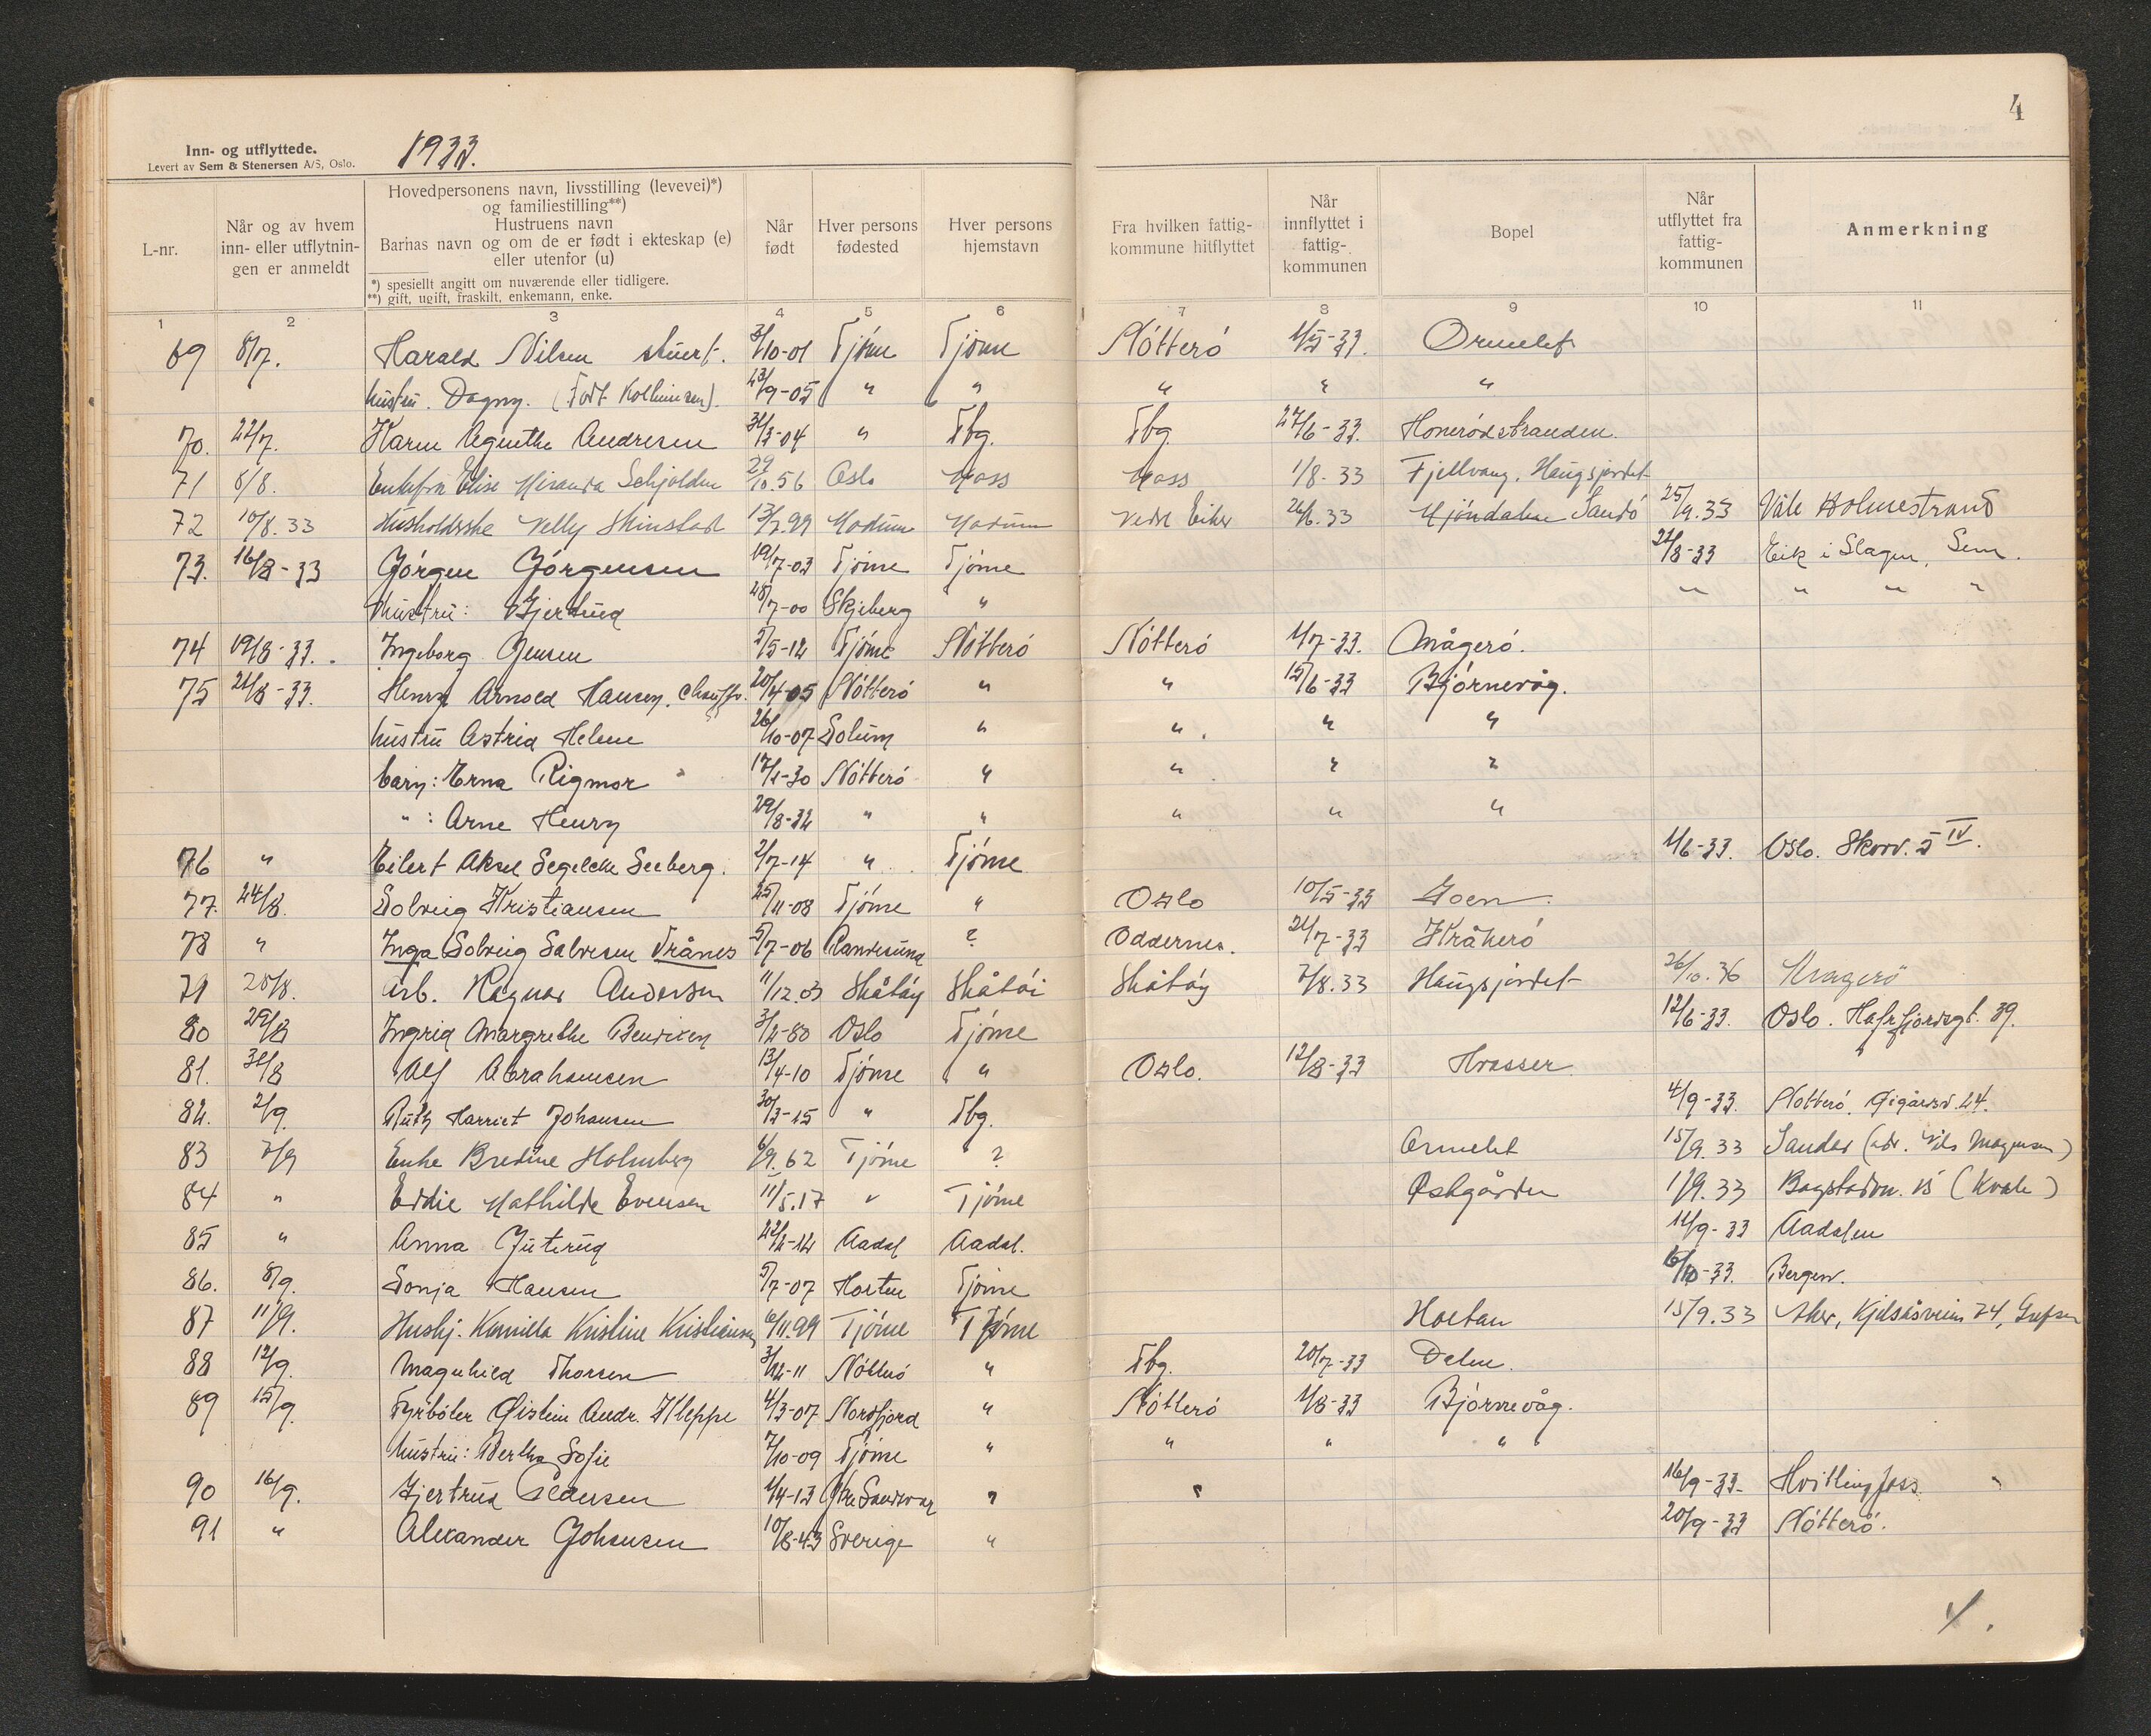 4
Inn- og utflyttede.
Levert av Sem & Stenersen A/S, Oslo.
1933.
L-nr.
Når og av hvem inn- eller utflytnin-gen er anmeldt
Hovedpersonens navn, livsstilling (levevei)*)
og familiestilling**)
Hustruens navn
Barnas navn og om de er født i ekteskap (e)
eller utenfor (u)
*) spesiellt angitt om nuværende eller tidligere.
**) gift, ugift, fraskilt, enkemann, enke.
Når født
Hver persons fødested
Hver persons hjemstavn
Fra hvilken fattig-kommune hitflyttet
Når innflyttet i fattig-kommunen
Bopel
Når utflyttet fra fattig-kommunen
Anmerkning
1 2 3 4 5 6 7 8 9 10 11
69 8/7. Harald Nilsen stuert. 3/10-01 Tjöme Tjöme Nötterö 1/5-33. Ormelet
hustru. Dagny. (Født 23/9-05 " " " " "
70. 22/7. Karen Agnethe Andresen 31/3-04 " Tbg. Tbg. 27/6-33. Honerödstranden.
71 8/8. Enkefru Elise Miranda Schjolden 29/10.56 Oslo Moss Moss 1/8-33 Fjellvang, Haugsjordet
72 10/8.33 Husholderske Nelly Skinstad 13/7.99 Modum Modum Nedre Eiker 26/6.33 Mjöndalen Sandö 25/9.33 Våle Holmestrand
73. 16/8-33 Jörgen Jörgensen 19/7-03 Tjöme Tjöme 21/8-33 Eik i Slagen, Sem.
Hustru: Gjertrud 28/7-00 Skjeberg " " " " "
74 19/8-33. Ingeborg Jensen 5/5-12 Tjöme Nötterö Nötterö 1/7-33. Mågerö.
75 21/8-33. Henry Arnold Hansen, chauffør. 20/4-05 Nötterö " " 15/6-33 Björnevåg.
hustru Astrid Helene 26/10-07 Solum " " " "
barn: Erna Rigmor 17/1-30 Nötterö " " " "
" : Arne Henry 29/8-32 " " " " "
76 " Eilert Aksel Segelcke Seeberg. 2/7-14 " Tjöme 1/6-33. Oslo. Skovv. 5 IV.
77. 24/8. Solveig Kristiansen 25/11-08 Tjöme " Oslo 10/5-33 Goen.
78 " Inga Solveig Salvesen Trånes 5/7-06 Randesund ? Oddernes. 21/7-33 Kråkerö
79 28/8. Arb. Ragnar Andersen 11/12.03 Skåtöy Skåtöi Skåtöy 7/8.33 Haugsjordet 26/10.36 Kragerö
80 29/8 Ingrid Margrethe Bendixen 3/2-80 Oslo Tjöme 12/6-33. Oslo. Hafrsfjordsgt. 39.
81. 31/8 Alf Abrahamsen 13/4-10 Tjöme " Oslo. 12/8-33 Hvasser
82. 2/9. Ruth Harriet Johansen 30/3-15 " Tbg. 4/9-33. Nötterö.
83 7/9 Enke Bredine Holmberg 6/9.62 Tjöme " ? Ormelet 15/9.33 Sandar (adr. Nils Magnusen)
84 " Eddie Mathilde Evensen 11/5.17 " Tjöme Østgården 1/9.33 Bogstadvn. (Kvale)
85 " Anna Juterud 22/2-12 Aadal Aadal. 11/9-33 Aadalen
86. 8/9. Sonja Hansen 5/7-07 Horten Tjöme 15/10-33. Bergen.
87 11/9. Hushj. Kamilla Kristine Kristiansen 10/11.99 Tjöme Tjöme Holtan 15/9.33 Aker, Kjelsåsveien 74, Grefsen
88 12/9. Magnhild Thorsen 3/12-11 Nötterö " Tbg. 20/7-33 Dalen.
89 15/9. Fyrböter Øistein Andr. Kleppe 4/3-07 Nordfjord " Nötterö 1/8-33 Björnevåg.
hustru: Bertha Sofie 7/10-09 Tjöme " " " "
90 16/9. Gjertrud Pedersen 1/4-13 Øvre Sandsvær " " 16/9-33. Hvittingfoss
91 " Alexander Johansen 10/8-43 Sverige " 20/9-33 Nötterö.